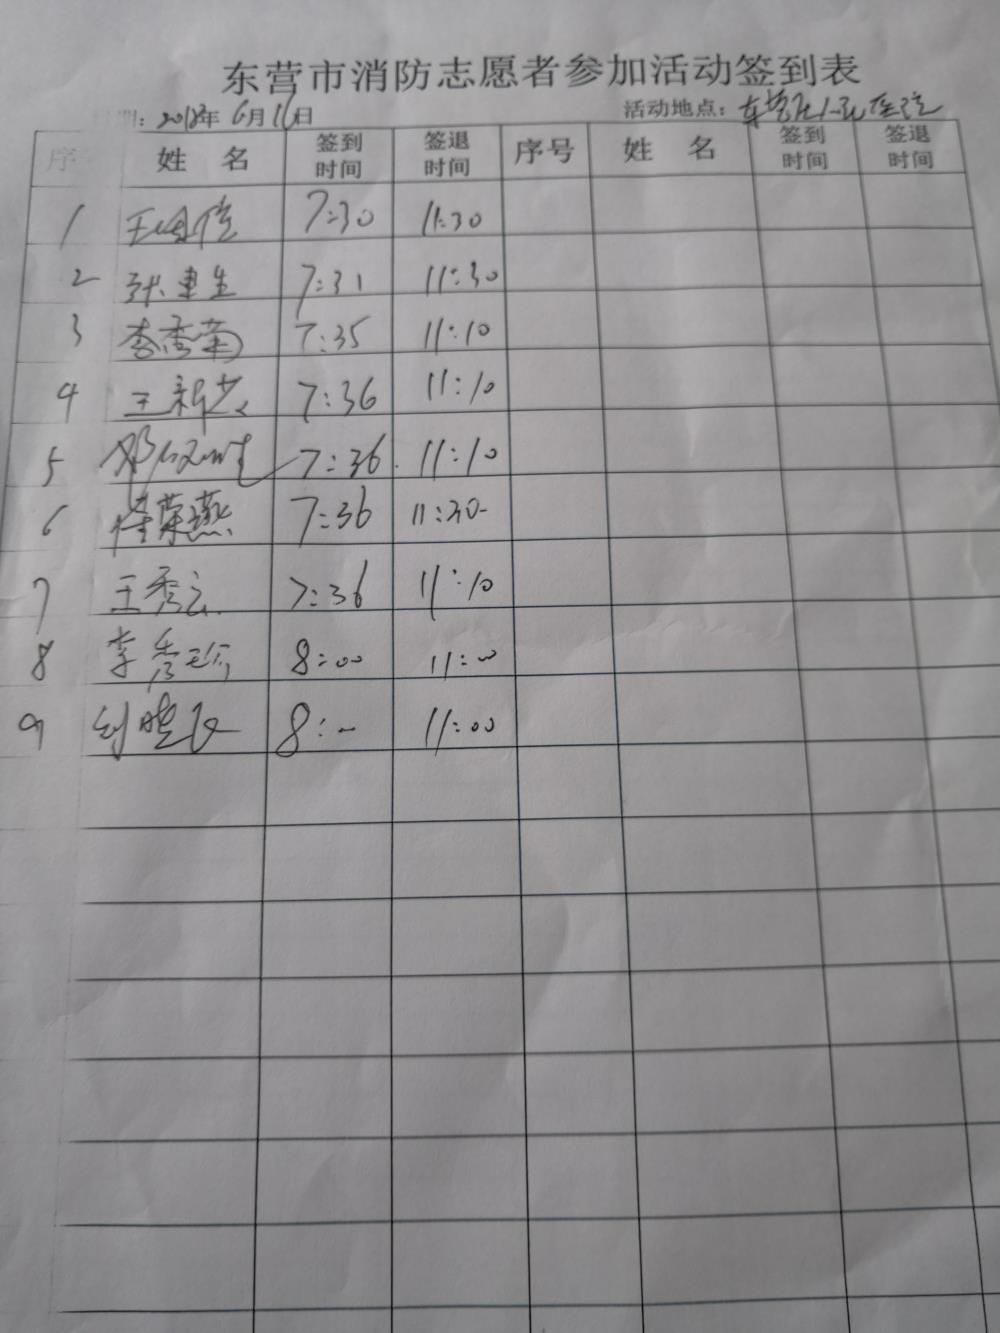 东营市消防志愿者参加活动签到表
期: 2018年 6月16日 活动地点: 东营区人民医院
序 姓 名 签到时间 签退时间 序号 姓 名 签到时间 签退时间
1 王 7:30 11:30
2 张重生 7:31 11:30
3 李秀菊 7:35 11:10
4 王新 7:36 11:10
5 邓 7:36 11:10
6 荣燕 7:36 11:30
7 王秀云 7:36 11:10
8 李秀珍 8:00 11:00
9 刘晓 8:00 11:00